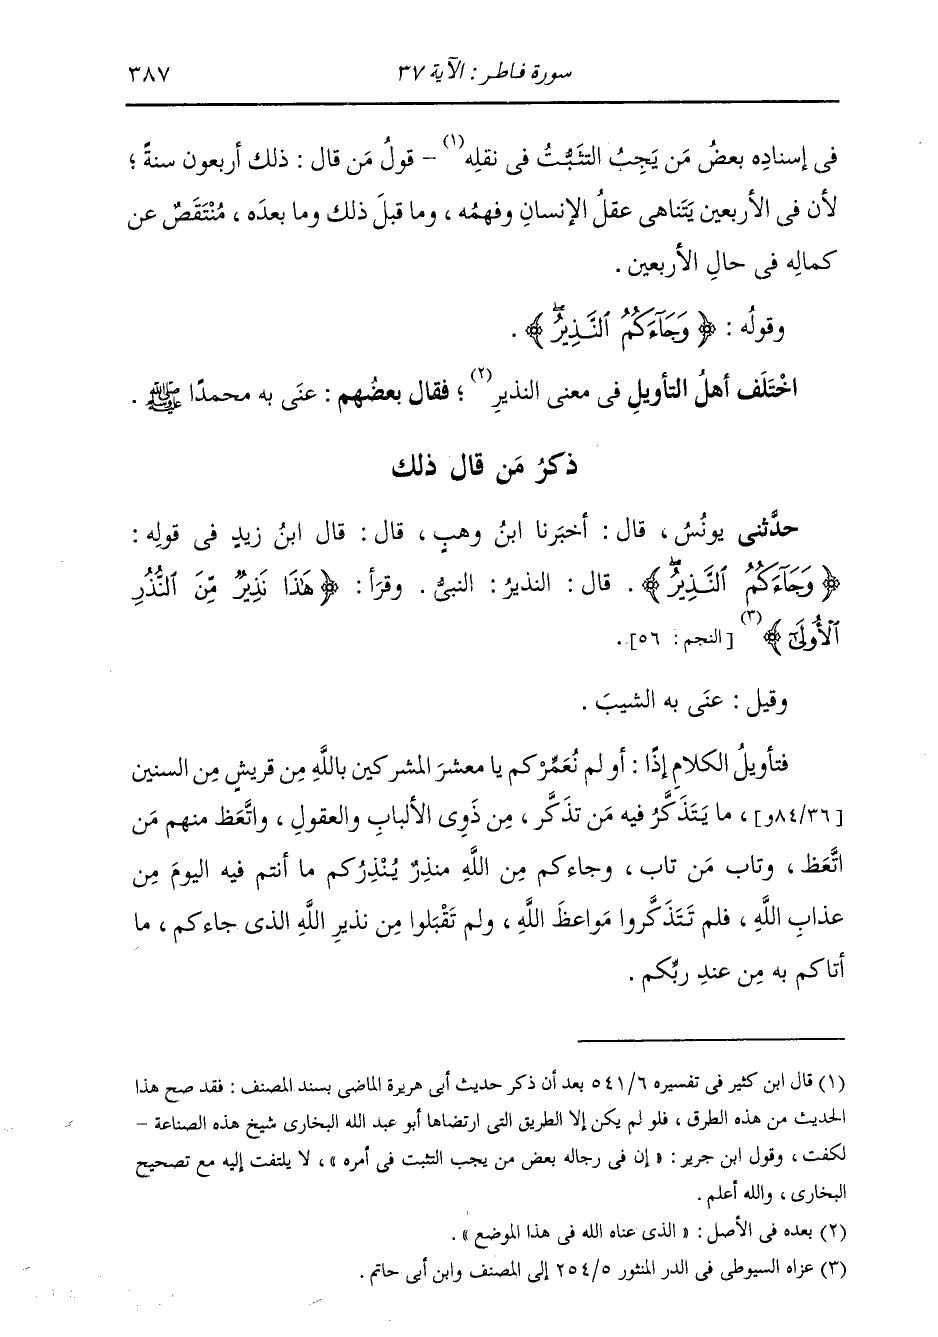 سورة فاطر : الآية ٣٧ ٣٨٧
فى إسنادِه بعضُ مَن يَجِبُ التثَبُّتُ فى نقلِه(١) – قولُ مَن قال : ذلك أربعون سنةً ؛
لأن فى الأربعين يَتَناهى عقلُ الإنسانِ وفهمُه ، وما قبلَ ذلك وما بعدَه ، مُنْتَقَصٌ عن
كمالِه فى حالِ الأربعين .
وقولُه : ﴿ وَجَآءَكُمُ ٱلنَّذِيرُۖ ﴾ .
اخْتَلَف أهلُ التأويلِ فى معنى النذيرِ(٢) ؛ فقال بعضُهم : عنَى به محمدًا ﷺ .
ذكرُ مَن قال ذلك
حدَّثنى يونُسُ ، قال : أخبَرنا ابنُ وهبٍ ، قال : قال ابنُ زيدٍ فى قولِه :
﴿ وَجَآءَكُمُ ٱلنَّذِيرُۖ ﴾ . قال : النذيرُ : النبىُّ . وقرَأ : ﴿ هَٰذَا نَذِيرٌ مِّنَ ٱلنُّذُرِ
ٱلْأُولَىٰٓ ﴾(٣) [النجم : ٥٦] .
وقيل : عنَى به الشيبَ .
فتأويلُ الكلامِ إذًا : أو لم نُعَمِّرْكم يا معشرَ المشركين باللَّهِ مِن قريشٍ مِن السنين
[٨٤/٣٦و] ، ما يَتَذَكَّرُ فيه مَن تذكَّر ، مِن ذَوِى الألبابِ والعقولِ ، واتَّعَظ منهم مَن
اتَّعَظ ، وتاب مَن تاب ، وجاءكم مِن اللَّهِ منذِرٌ يُنْذِرُكم ما أنتم فيه اليومَ مِن
عذابِ اللَّهِ ، فلم تَتَذَكَّروا مَواعظَ اللَّهِ ، ولم تَقْبَلوا مِن نذيرِ اللَّهِ الذى جاءكم ، ما
أتاكم به مِن عندِ ربِّكم .
(١) قال ابن كثير فى تفسيره ٥٤١/٦ بعد أن ذكر حديث أبى هريرة الماضى بسند المصنف : فقد صح هذا
الحديث من هذه الطرق ، فلو لم يكن إلا الطريق التى ارتضاها أبو عبد الله البخارى شيخ هذه الصناعة –
لكفت ، وقول ابن جرير : « إن فى رجاله بعض من يجب التثبت فى أمره » ، لا يلتفت إليه مع تصحيح
البخارى ، والله أعلم .
(٢) بعده فى الأصل : « الذى عناه الله فى هذا الموضع » .
(٣) عزاه السيوطى فى الدر المنثور ٢٥٤/٥ إلى المصنف وابن أبى حاتم .